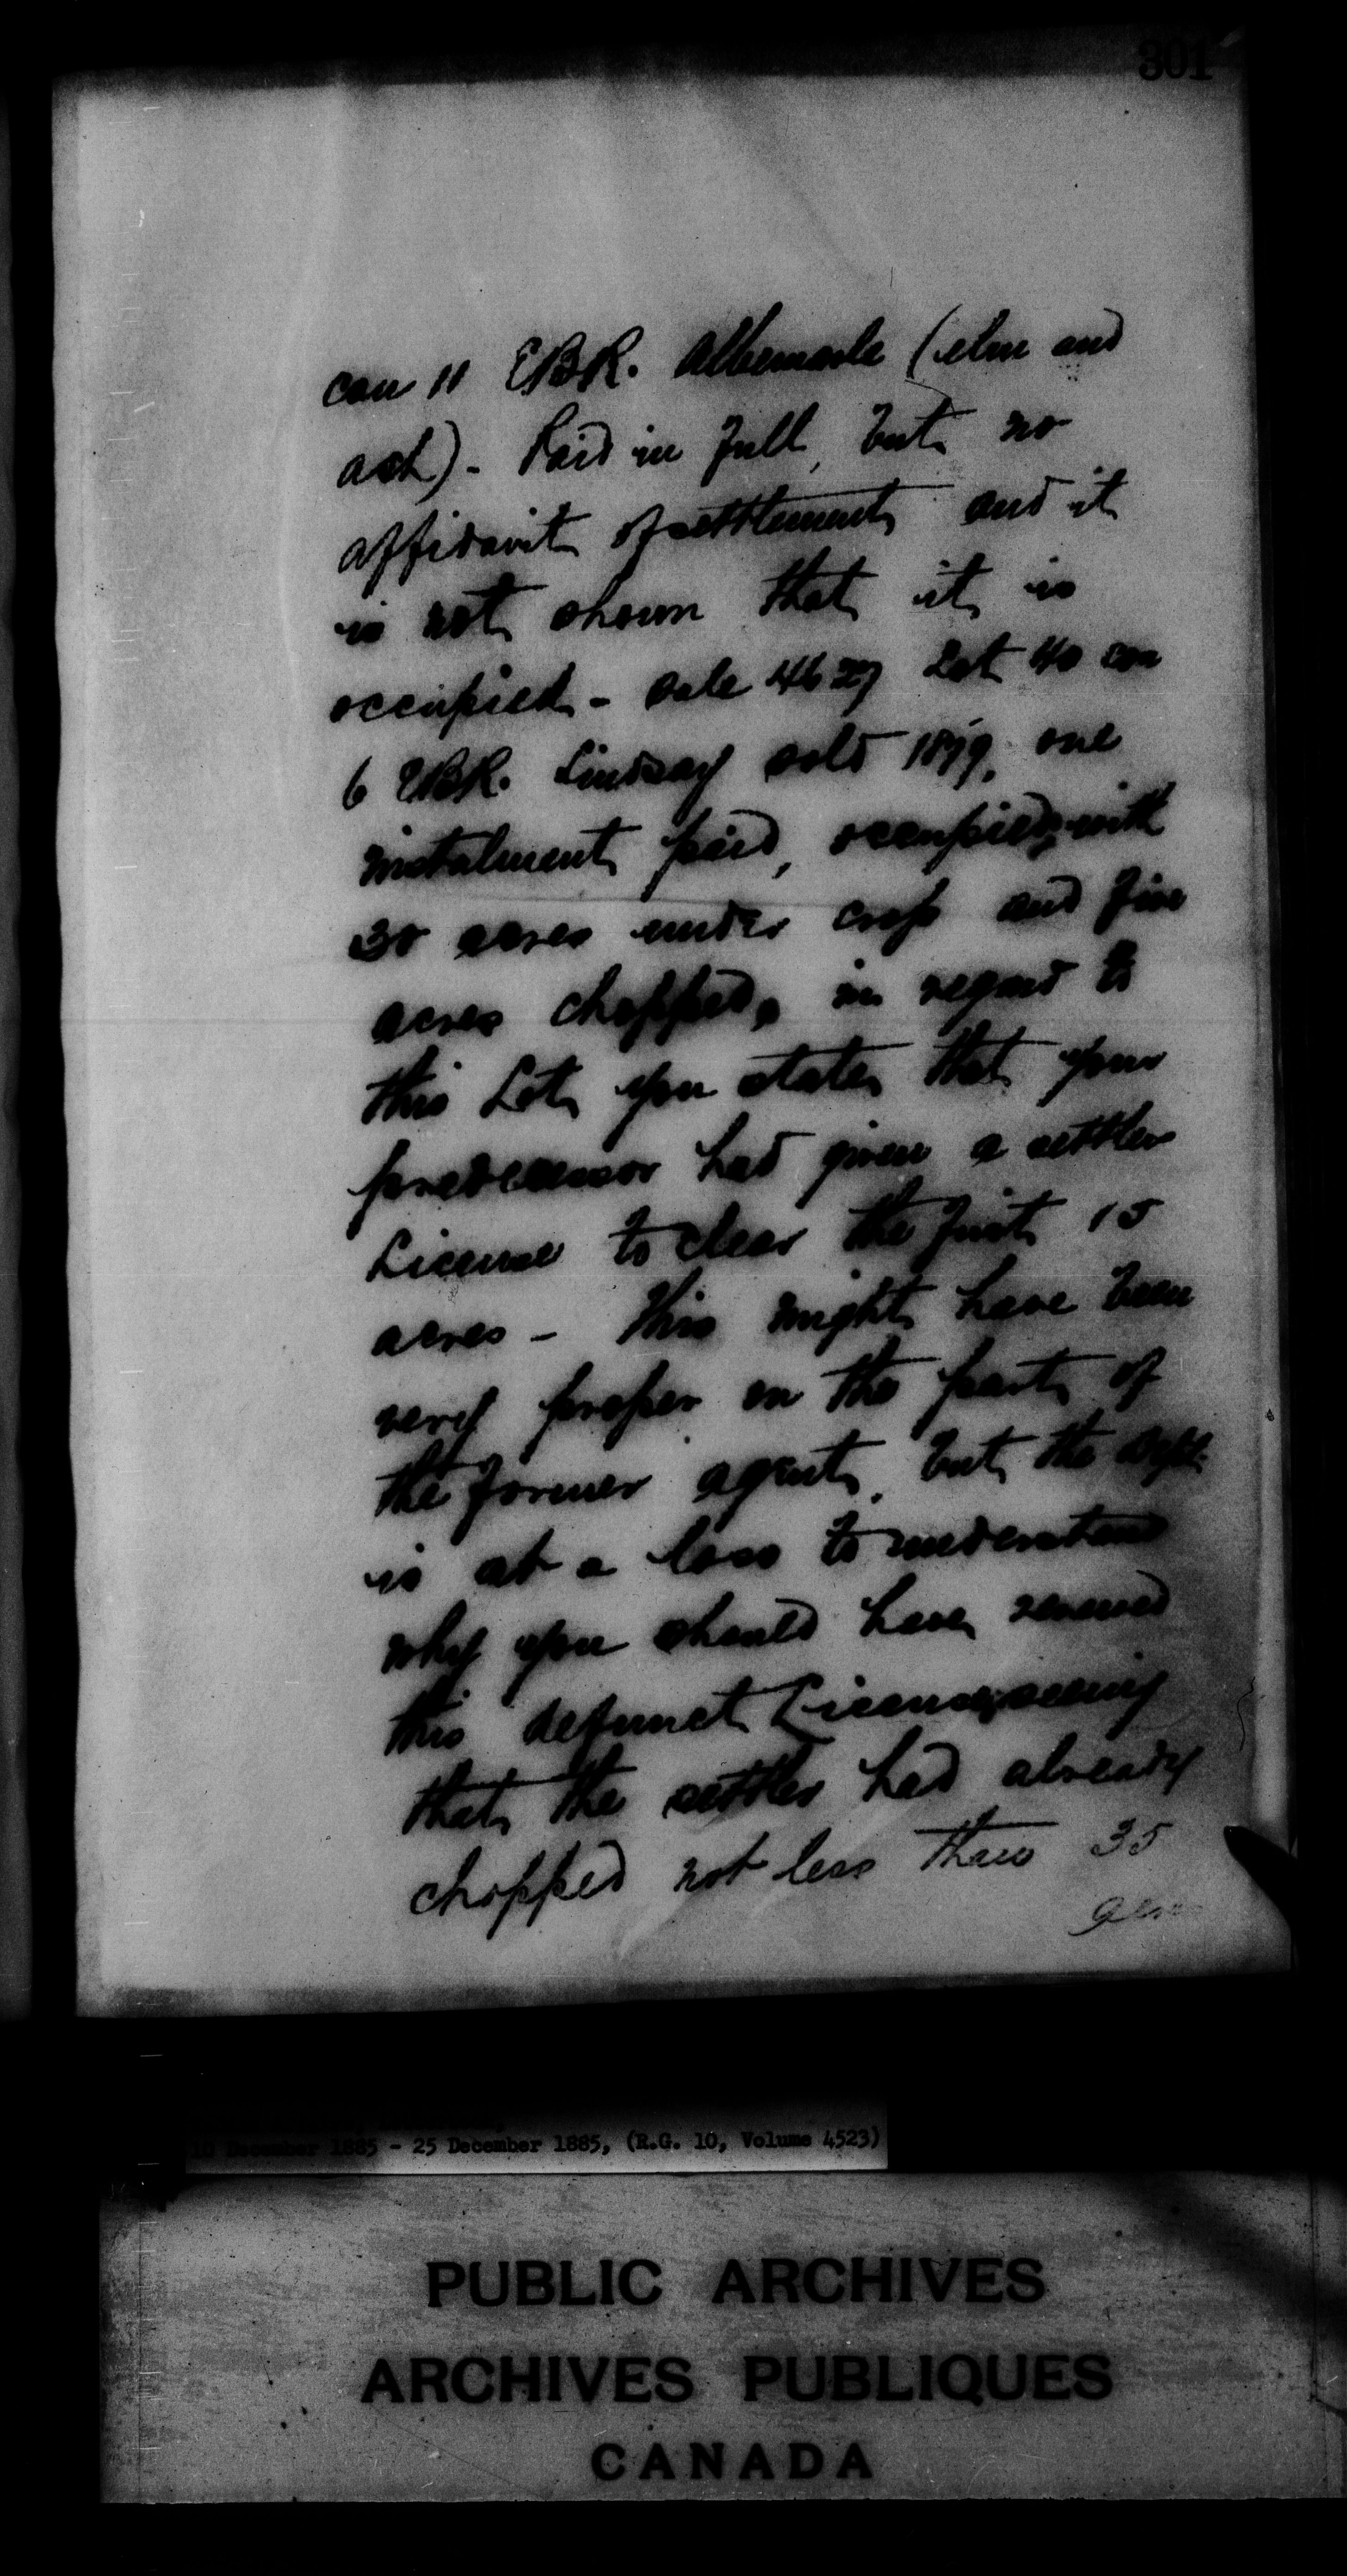 301
con 11 EBR. Albemarle (elm and
ash) - Paid in full, but no
affidavit of settlement and it
is not shown that it is
occupied - Sale 4627 Lot 40 con
6 EBR. Lindsay sold 1879, one
instalment paid, occupied, with
30 acres under crop and five
acres chopped, in regard to
this Lot, you state, that your
predecessor had given a settlers
License to clear the first 15
acres - This might have been
very proper on the part of
the former agent, but the Dept.
is at a loss to understand
why you should have renewed
this defunct License, seeing
that the settler had already
chopped not less than 35
acres
10 December 1885 - 25 December 1885, (R.G. 10, Volume 4523)
PUBLIC ARCHIVES
ARCHIVES PUBLIQUES
CANADA